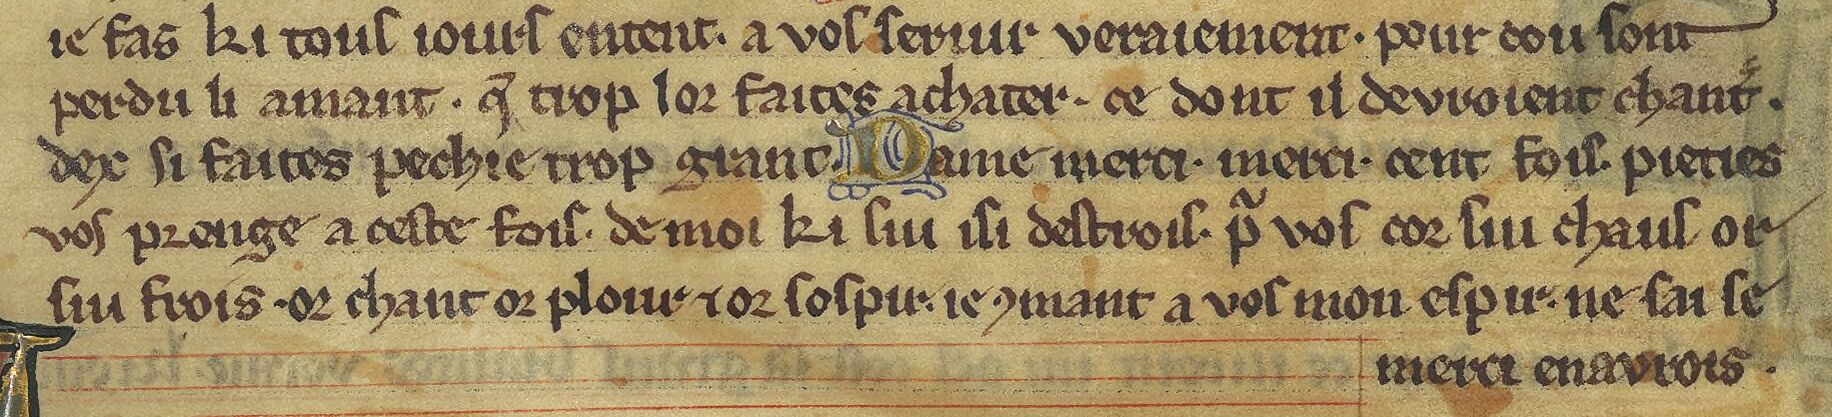 ie fas ki tous iours entent· a vos seruir veraiement· pour cou sont
perdu li amant · q̃ trop lor faites achater· ce dont il devroient chant᷑·
dex si faites pechie trop grant· Dame merci· merci· cent fois· pieties
vos prenge a ceste fois· de moi ki sui isi destrois· p̃ vos cor sui chaus or
sui frois · or chant or plour ⁊ or sospir· ie ꝯmant a vos mon espir· ne sai se
merci enavrois ·